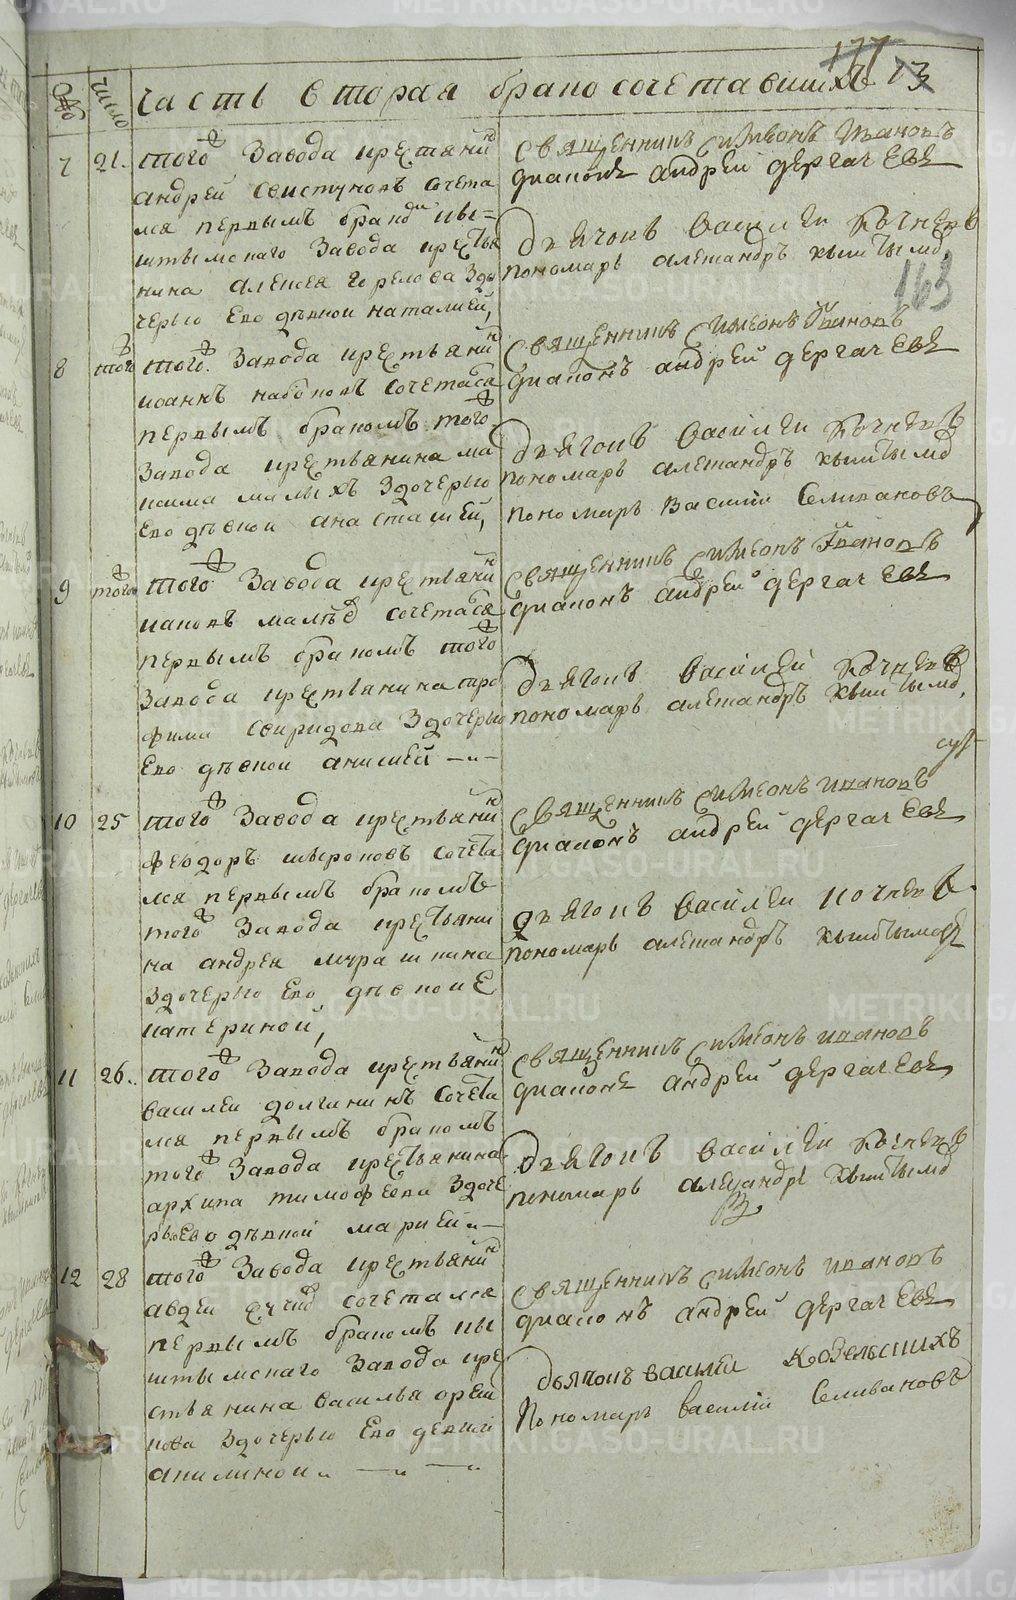 177
13
№ число Часть вторая бракосочетавшихъ
7 21. того Завода крестьянинъ
андрей Свистуновъ сочета
лся первымъ бракомъ кы-
штымскаго Завода крестья
нина алексея Горелова Здо
черью Ево дѣвкой наталией,
Священникъ Симеонъ Ивановъ
диаконъ андрей дергачевъ
Дьячокъ Василеи Кочневъ
пономарь александръ кыштымовъ
163
8 того того Завода крестьянинъ
иоаннъ набоковъ сочетался
первымъ бракомъ того
Завода крестьянина ма
ксима малыхъ Здочерью
Ево дѣвкой анастасией,
Священникъ Симеонъ Ивановъ
диаконъ андрей дергачевъ
Дьячокъ Василеи Кочневъ
пономарь александръ кыштымовъ
пономарь Василий Селивановъ
9 того того Завода крестьянинъ
иаковъ сочетался
первымъ бракомъ того
Завода крестьянина тро
фима Свиридова Здочерью
Ево дѣвкой анисией
Священникъ Симеонъ Ивановъ
диаконъ андрей дергачевъ
Дьячокъ Василеи Кочневъ
пономарь александръ кыштымовъ
10 25 того Завода крестьянинъ
феодоръ широковъ сочета
лся первымъ бракомъ
того Завода крестьяни
на андрея мурашкина
Здочерью Ево дѣвкой Е
катериной,
Священникъ Симеонъ Ивановъ
диаконъ андрей дергачевъ
дьячокъ Василеи Кочневъ
пономарь александръ кыштымовъ
11 26. того Завода крестьянинъ
василеи долгининъ сочета
лся первымъ бракомъ
того Завода крестьянина
архипа тимофеева Здоче
рью Ево дѣвкой марией
Священникъ Симеонъ Ивановъ
диаконъ андрей дергачевъ
Дьячокъ Василеи Кочневъ
пономарь александръ кыштымовъ
12 28 того Завода крестьянинъ
авдеи сочетался
первымъ бракомъ кы
штымскаго Завода кре
стьянина василья ореш
кова Здочерью Ево девкой
акилиной
Священникъ Симеонъ Ивановъ
диаконъ андрей дергачевъ
Дьячокъ василий Кодельскихъ
Пономарь василий Селивановъ
METRIKI.GASO-URAL.RU